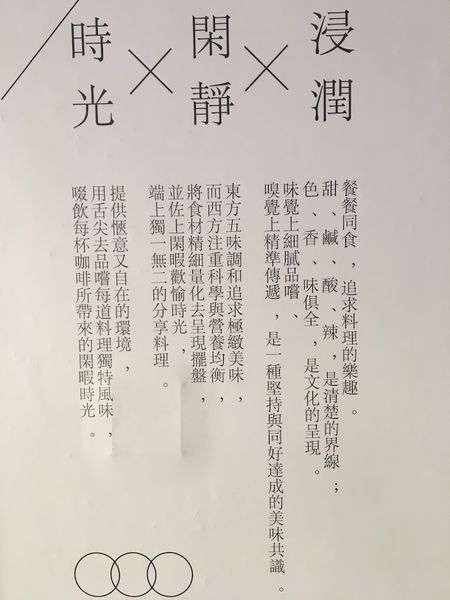 浸潤
×
閑靜
×
時光
餐餐同食，追求料理的樂趣。
甜、鹹、酸、辣，是清楚的界線；
色、香、味俱全，是文化的呈現。
味覺上細膩品嚐、
嗅覺上精準傳遞，是一種堅持與同好達成的美味共識。
東方五味調和追求極緻美味，
而西方注重科學與營養均衡，
將食材精細量化去呈現擺盤，
並佐上閑暇歡愉時光，
端上獨一無二的分享料理。
提供愜意又自在的環境，
用舌尖去品嚐每道料理獨特風味，
啜飲每杯咖啡所帶來的閑暇時光。